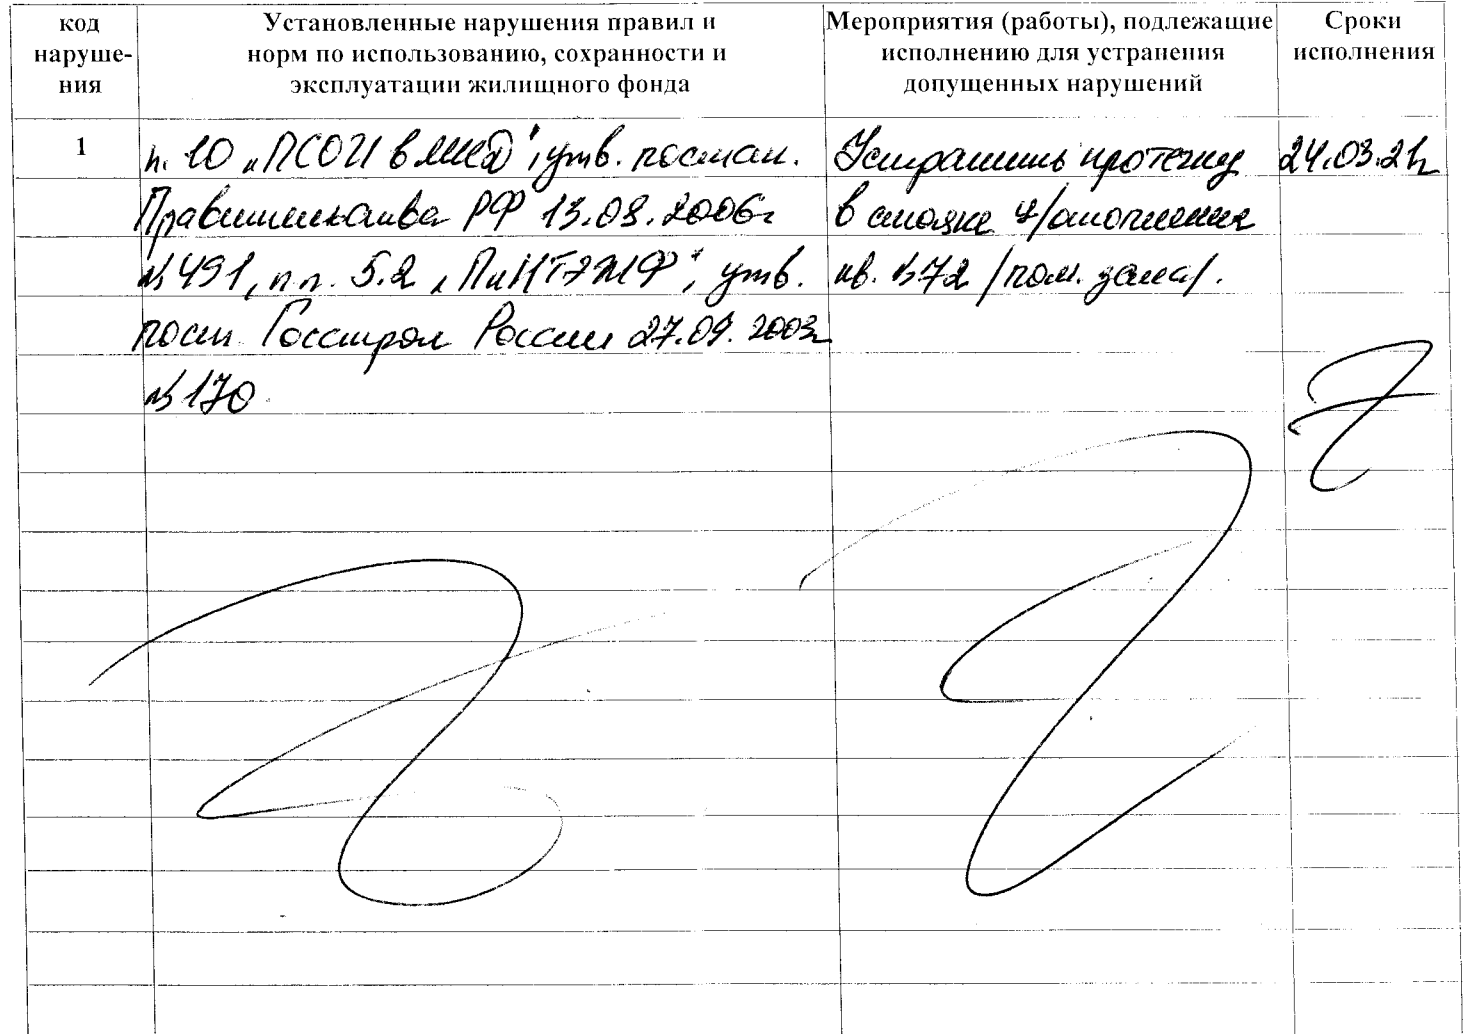 код наруше- ния
Установленные нарушения правил и норм по использованию, сохранности и эксплуатации жилищного фонда
Мероприятия (работы), подлежащие исполнению для устранения допущенных нарушений
Сроки исполнения
1
п. 10 „ПСОИ в МКД", утв. постан.
Правительства РФ 13.08.2006г
№491, п.п. 5.2 „ПиНТЭЖФ", утв.
пост. Госстроя России 27.09.2003г
№170
Устранить протечку
в стояке ц/отопления
кв. №72 /пом. зала/.
24.03.21г